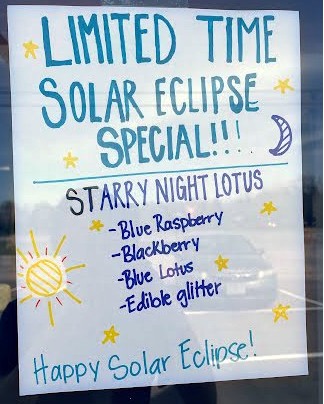 LIMITED TIME
SOLAR ECLIPSE
SPECIAL!!!
STARRY NIGHT LOTUS
-Blue Raspberry
-Blackberry
-Blue Lotus
-Edible glitter
Happy Solar Eclipse!